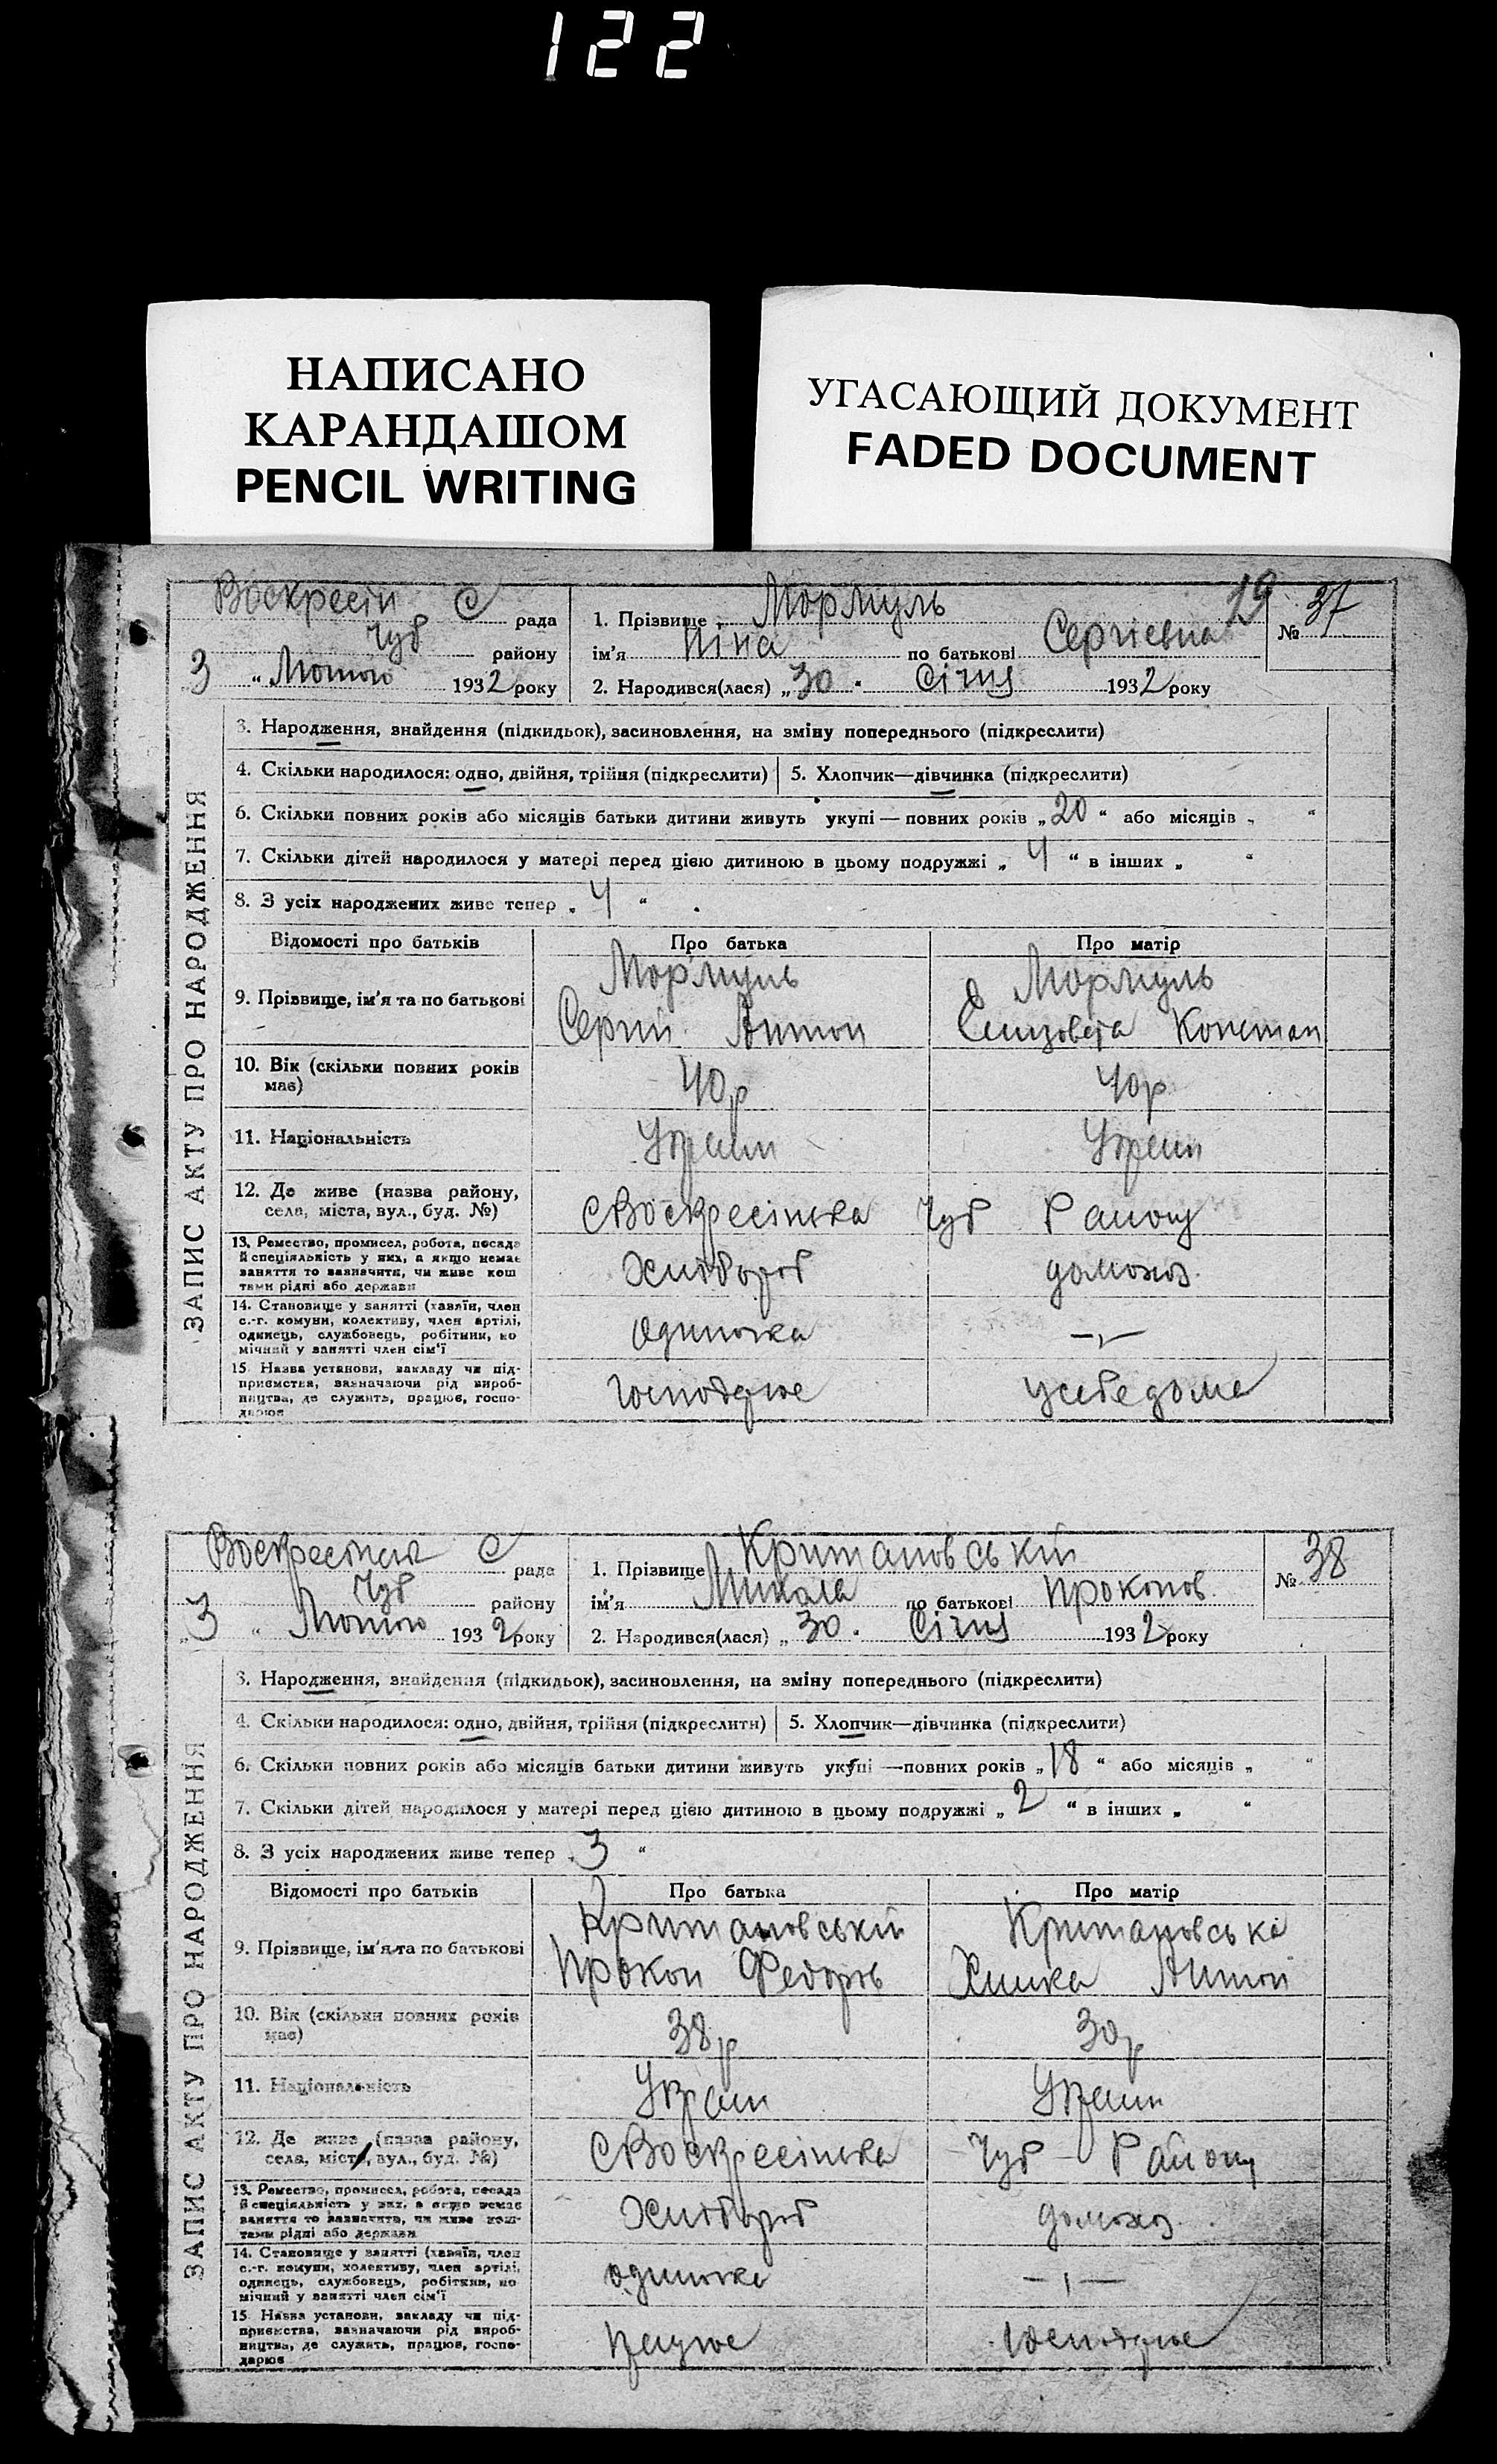 122
НАПИСАНО
КАРАНДАШОМ
PENCIL WRITING
УГАСАЮЩИЙ ДОКУМЕНТ
FADED DOCUMENT
ЗАПИС АКТУ ПРО НАРОДЖЕННЯ
Воскресін С рада
Чуб району
3 " Лютого 1932 року
1. Прізвище Мормуль 19
ім'я Ніна по батькові Сергієвна
№ 37
2. Народився(лася) „ 30 " Січня 1932 року
3. Народження, знайдення (підкидьок), засиновлення, на зміну попереднього (підкреслити)
4. Скільки народилося: одно, двійня, трійня (підкреслити) 5. Хлопчик—дівчинка (підкреслити)
6. Скільки повних років або місяців батьки дитини живуть укупі — повних років „ 20 " або місяців „ "
7. Скільки дітей народилося у матері перед цією дитиною в цьому подружжі „ 4 " в інших „ "
8. З усіх народжених живе тепер „ 4 "
Відомості про батьків Про батька Про матір
9. Прізвище, ім'я та по батькові
Мормуль Мормуль
Сергій Антон Єлизовета Констан
10. Вік (скільки повних років має) 40 р 40 р
11. Національність Украин Украин
12. Де живе (назва району,
села, міста, вул., буд. №) с Воскресінська Чуб Району
13. Ремество, промисел, робота, посада
й спеціяльність у них, а якщо немає
заняття то зазначити, чи живе кош
тами рідні або держави
Хлібороб домохоз
14. Становище у занятті (хазяїн, член
с.-г. комуни, колективу, член артілі,
одинець, службовець, робітник, по
мічний у занятті член сім'ї
одиночка —"—
15. Назва установи, закладу чи під-
приємства, зазначаючи рід вироб-
ництва, де служить, працює, госпо-
дарює
господарює усебе дома
ЗАПИС АКТУ ПРО НАРОДЖЕННЯ
Воскресінська С рада
Чуб району
„3 " Лютого 1932 року
1. Прізвище Критановський
ім'я Микола по батькові Прокопов
№ 38
2. Народився(лася) „ 30 " Січня 1932 року
3. Народження, знайдення (підкидьок), засиновлення, на зміну попереднього (підкреслити)
4. Скільки народилося: одно, двійня, трійня (підкреслити) 5. Хлопчик—дівчинка (підкреслити)
6. Скільки повних років або місяців батьки дитини живуть укупі —повних років „ 18 " або місяців „ "
7. Скільки дітей народилося у матері перед цією дитиною в цьому подружжі „ 2 " в інших „ "
8. З усіх народжених живе тепер „ 3 "
Відомості про батьків Про батька Про матір
9. Прізвище, ім'я та по батькові
Критановській Критановська
Прокоп Федоров Химка Антон
10. Вік (скільки повних років має) 38 р 30 р
11. Національність Украин Украин
12. Де живе (назва району,
села, міста, вул., буд. №) с Воскресінська Чуб Району
13. Ремество, промисел, робота, посада
й спеціяльність у них, а якщо немає
заняття то зазначити, чи живе кош-
тами рідні або держави
Хлібороб домохоз
14. Становище у занятті (хазяїн, член
с.-г. комуни, колективу, член артілі,
одинець, службовець, робітник, по
мічний у занятті член сім'ї
одиночка —"—
15. Назва установи, закладу чи під-
приємства, зазначаючи рід вироб-
ництва, де служить, працює, госпо-
дарює
працює господарює